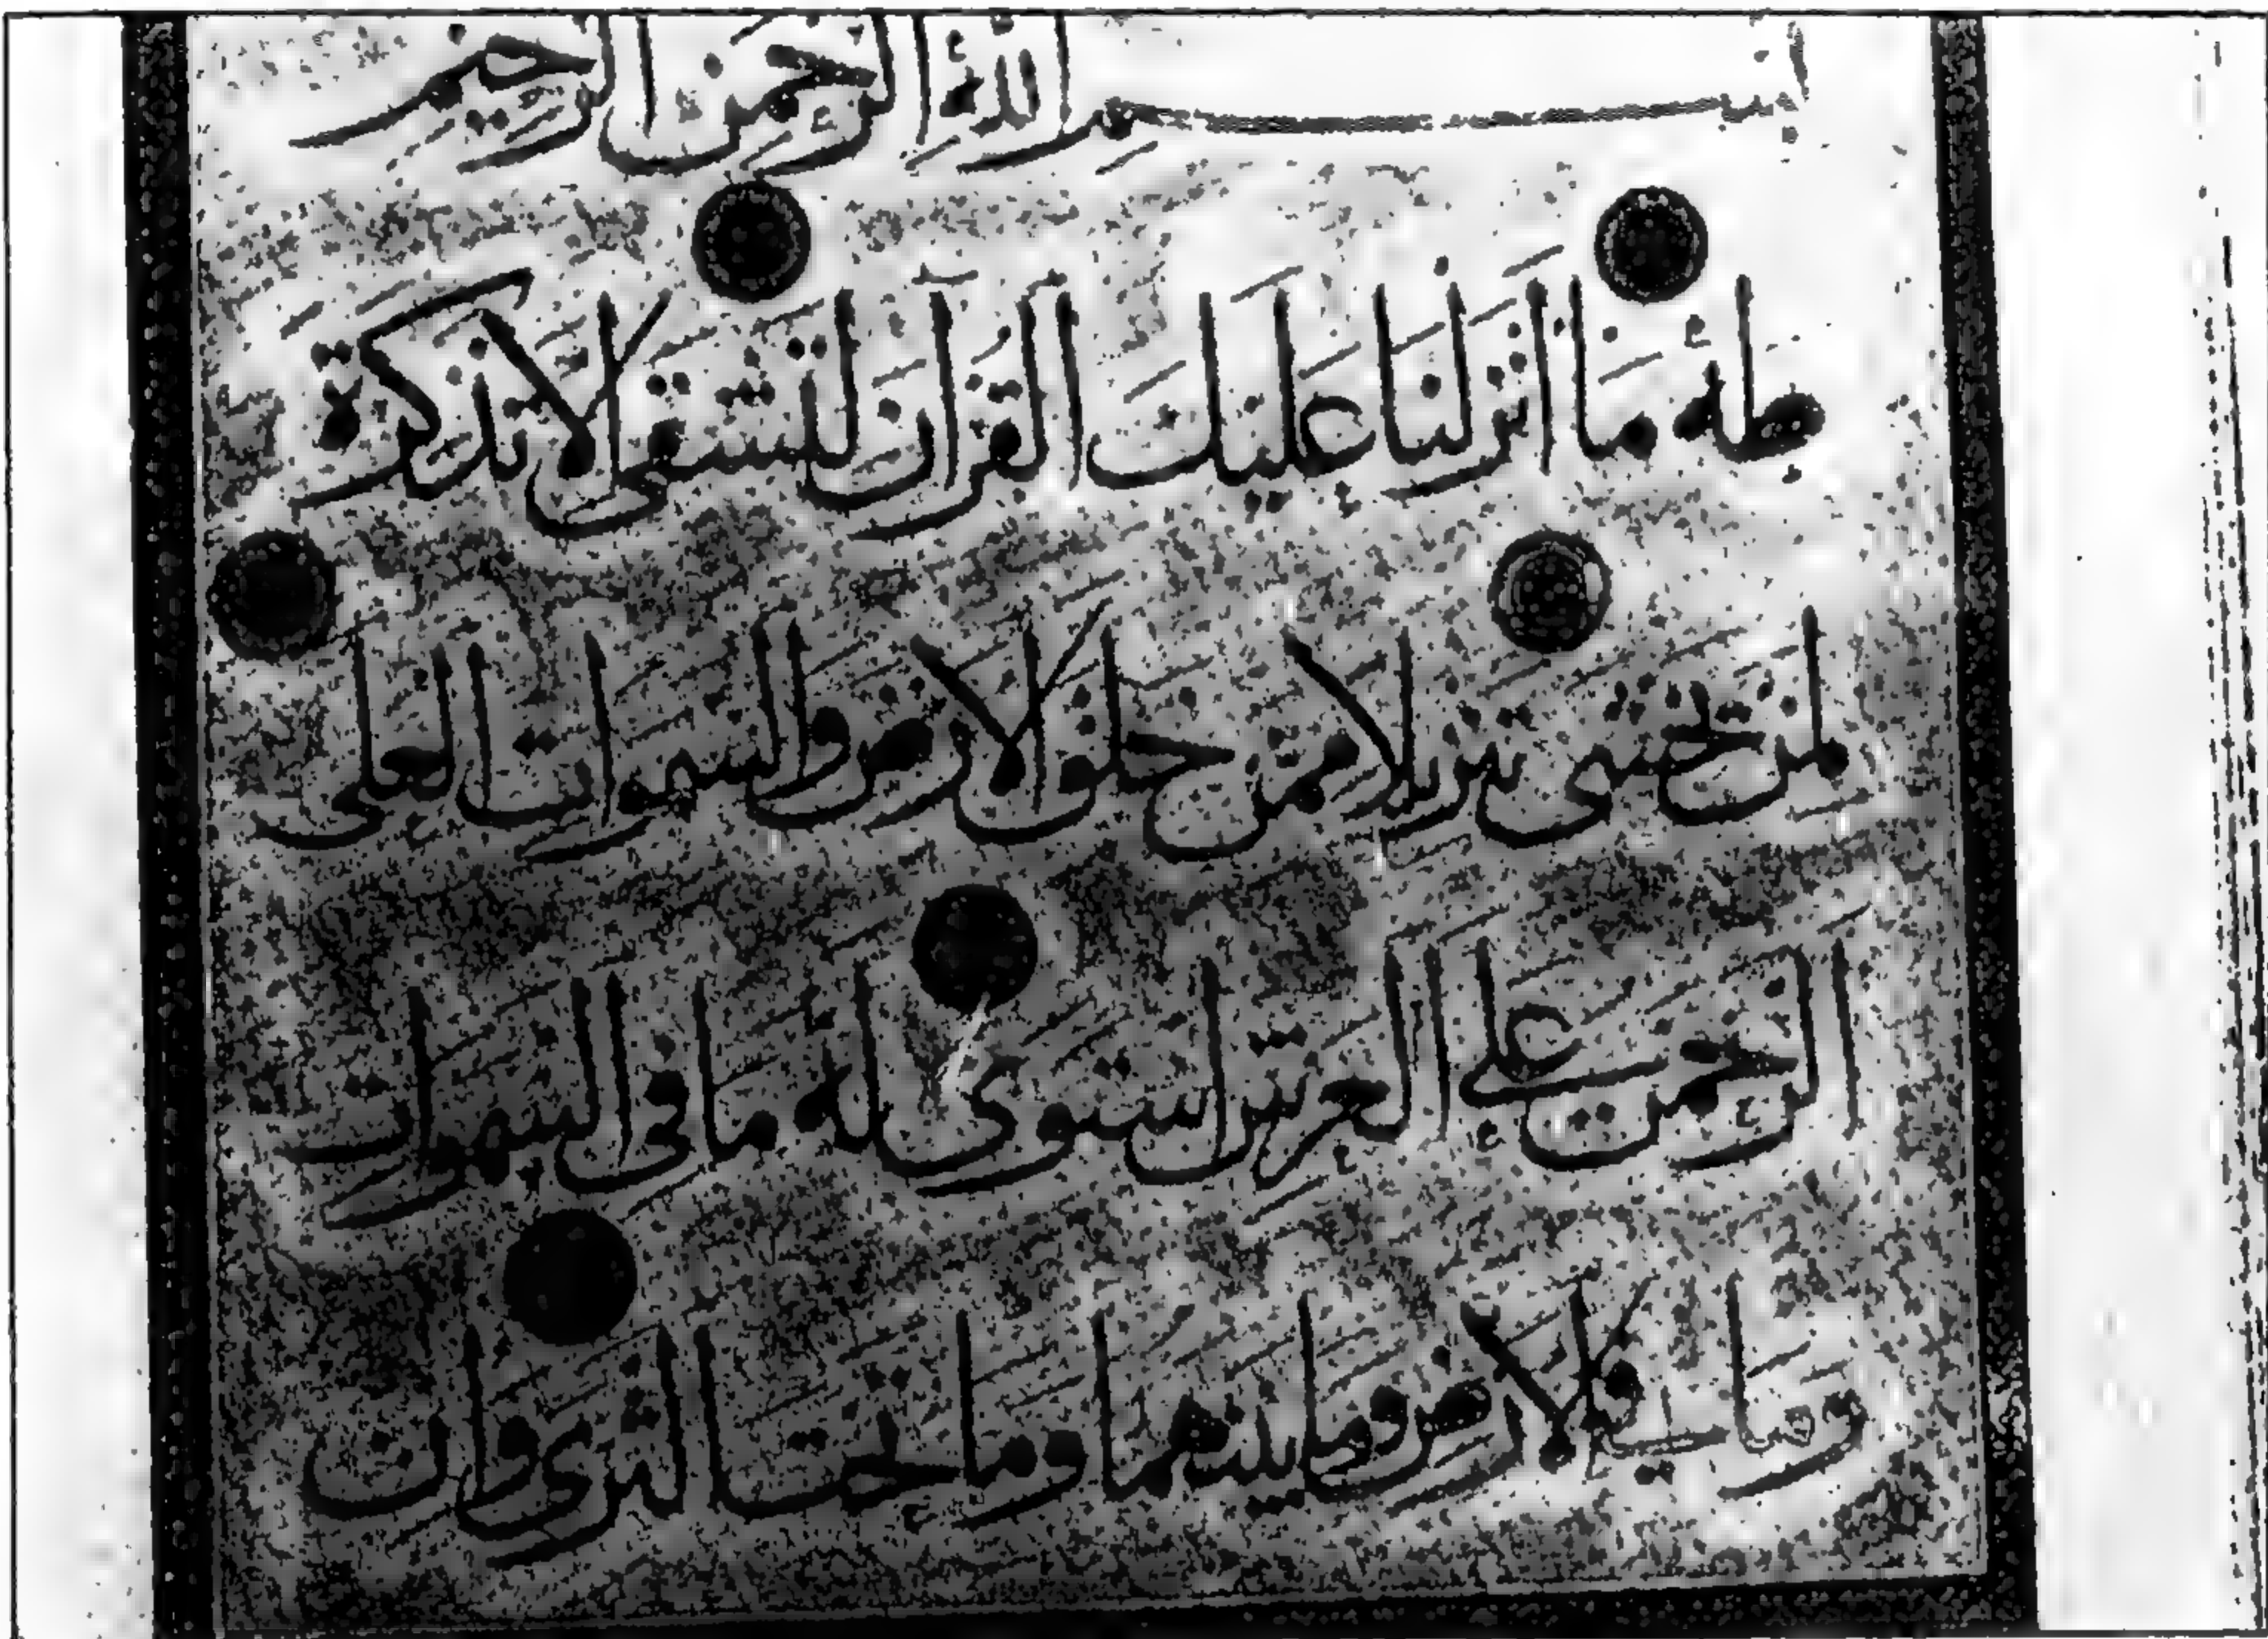 بِسْمِ اللهِ الرَّحْمٰنِ الرَّحِيمِ
طه مَا أَنْزَلْنَا عَلَيْكَ الْقُرْآنَ لِتَشْقَى إِلَّا تَذْكِرَةً
لِمَنْ يَخْشَى تَنْزِيلًا مِمَّنْ خَلَقَ الْأَرْضَ وَالسَّمَوَاتِ الْعُلَى
الرَّحْمَنُ عَلَى الْعَرْشِ اسْتَوَى لَهُ مَا فِي السَّمَوَاتِ
وَمَا فِي الْأَرْضِ وَمَا بَيْنَهُمَا وَمَا تَحْتَ الثَّرَى وَإِنْ